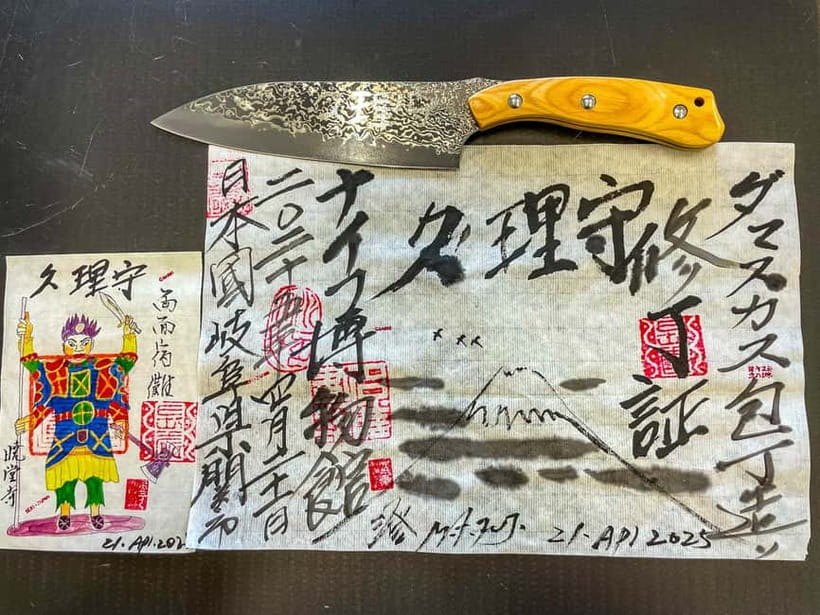 ダマスカス包丁造り
修了証
守理久
ナイフ博物館
二〇二十五年四月二十一日
日本國岐阜県関市
21. API 2025
守理久
両面宿儺
暁堂寺
21. API. 202